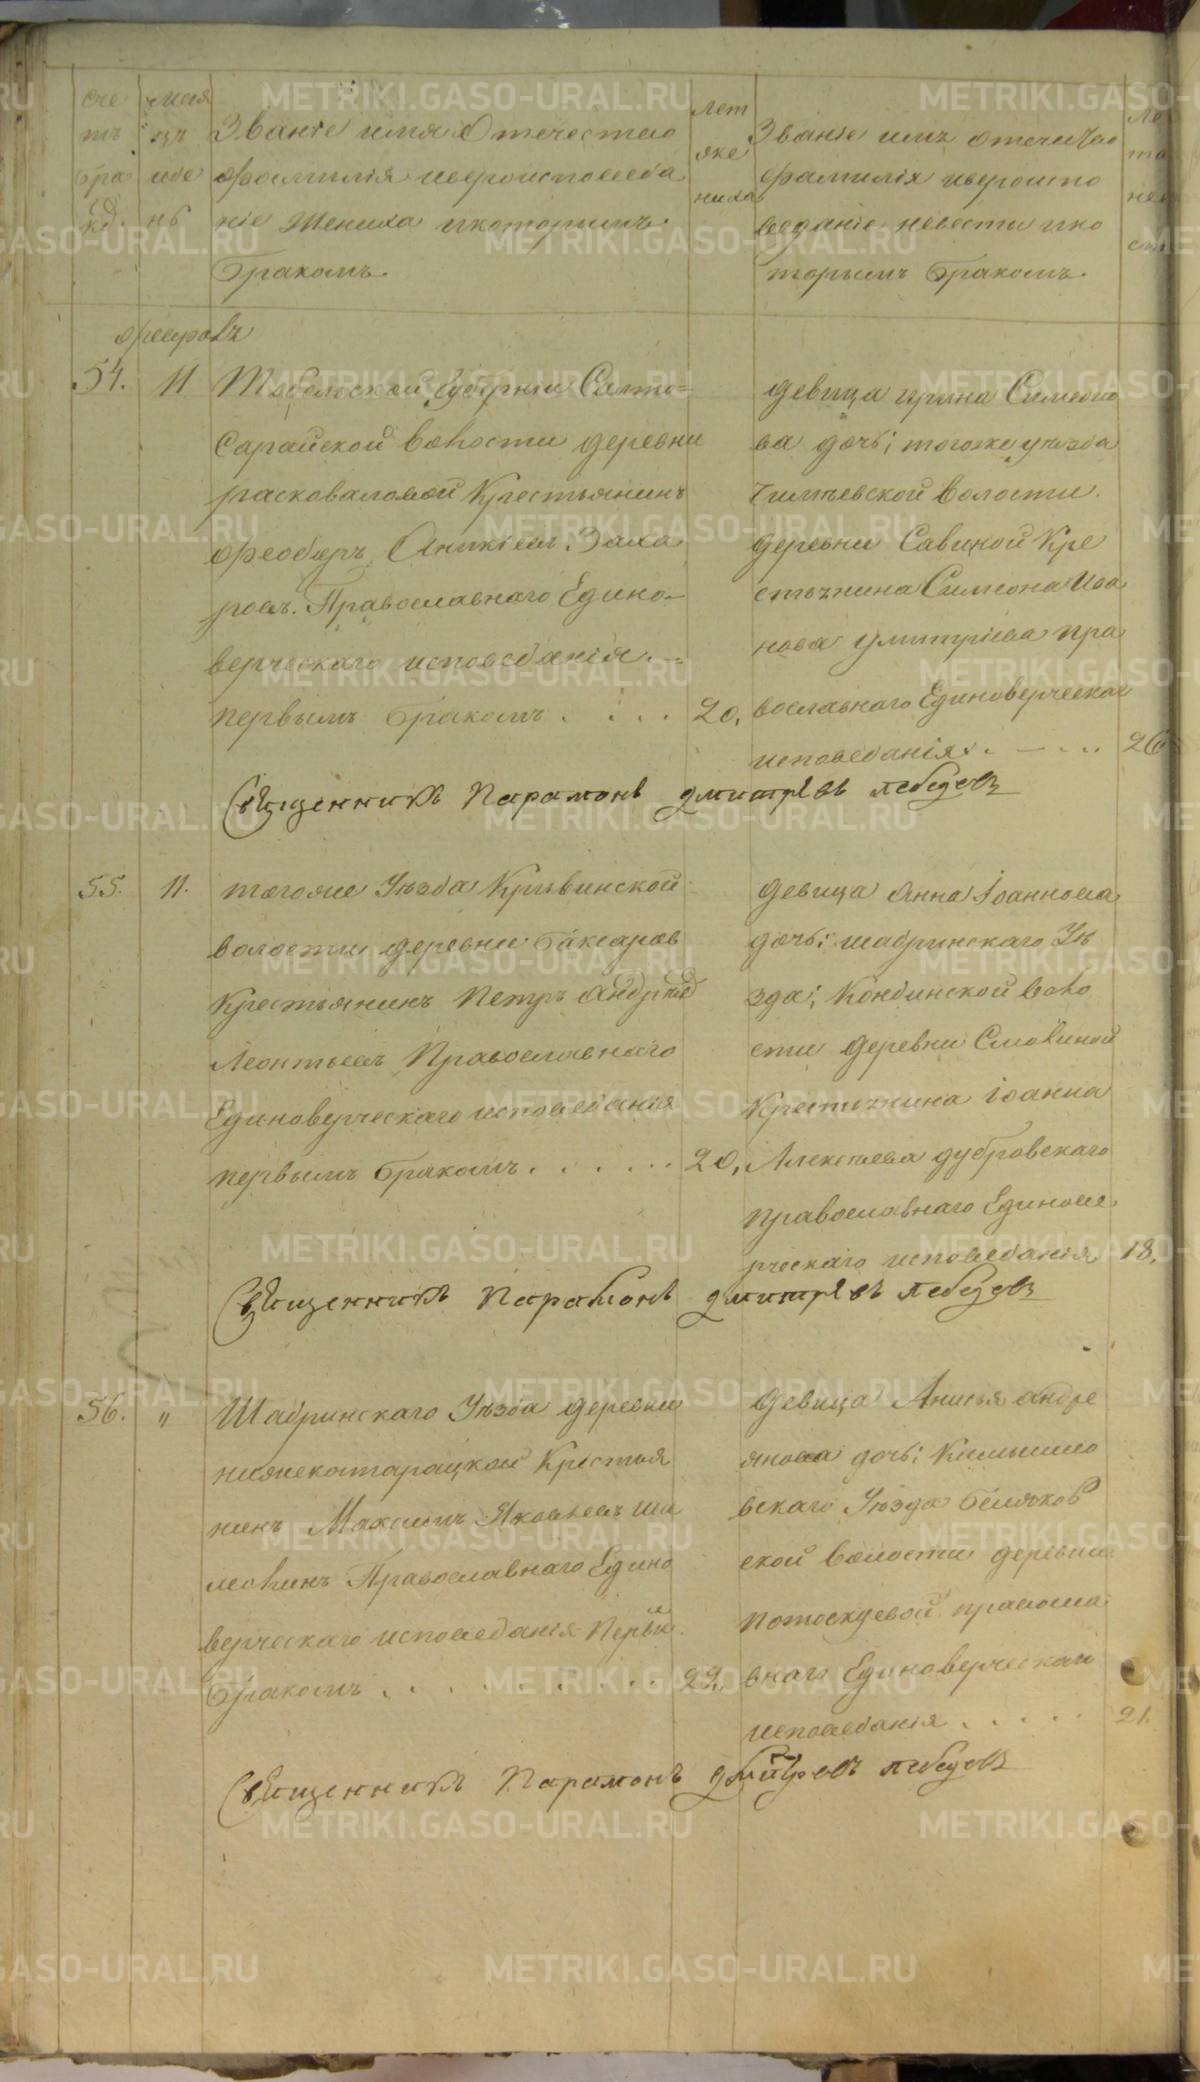 сче
тъ
бра
ко.
меся
цъ
иде
нь
Званіе имя Отечество
фомилія ивероисповеда
ніе Жениха икоторымъ
бракомъ.
лет
яже
ниха
Званіе имя отечество
фамилія ивероиспо
веданіе, невести ико
торымъ бракомъ.
ле
та
нев
ес
февраль
54. 11 Тобольской Губерніи Салто-
Сарайской волости деревни
расковаловой Крестьянинъ
феодоръ Аникіевъ Заха
ровъ. Православнаго Едино-
верческаго исповеданія.
первымъ бракомъ . . . . 20,
девица ирина Симеоно
ва дочь; тогоже уезда
Чимѣевской волости.
деревни Савиной Кре
стьянина Симеона Ива
нова Дмитріева пра
вославнаго Единоверческаг
исповеданія. . — . . . 26
Священникъ Парамонъ дмитрѣвъ лебедевъ
55. 11. тогоже Уѣзда Кривинской
волости деревни баксаров
Крестьянинъ Петръ андреев
Леонтьевъ Православнаго
Единоверческаго исповеданія
первымъ бракомъ . . . . . . 20,
девица анна Іоаннова
дочь; шадринскаго Уѣ
зда; Кондинской воло
сти деревни Смовиной
Крестьянина іоанна
Алексѣева дубровскаго
православнаго Единове
рческаго исповеданія 18.
Священникъ Парамонъ дмитрѣвъ лебедевъ
56. " Шадринскаго Уѣзда деревни
нижекатарацкой Крестья
нинъ Максимъ Яковлевъ
Православнаго Едино
верческаго исповеданія Первы
бракомъ . . . . . . . . 29.
Девица Анисья андре
янова дочь; Камышло
вскаго Уѣзда беляков
ской волости деревни
правосла
внаго Единоверческаго
исповеданія . . . . . 21.
Священникъ Парамонъ дмитревъ лебедевъ
METRIKI.GASO-URAL.RU